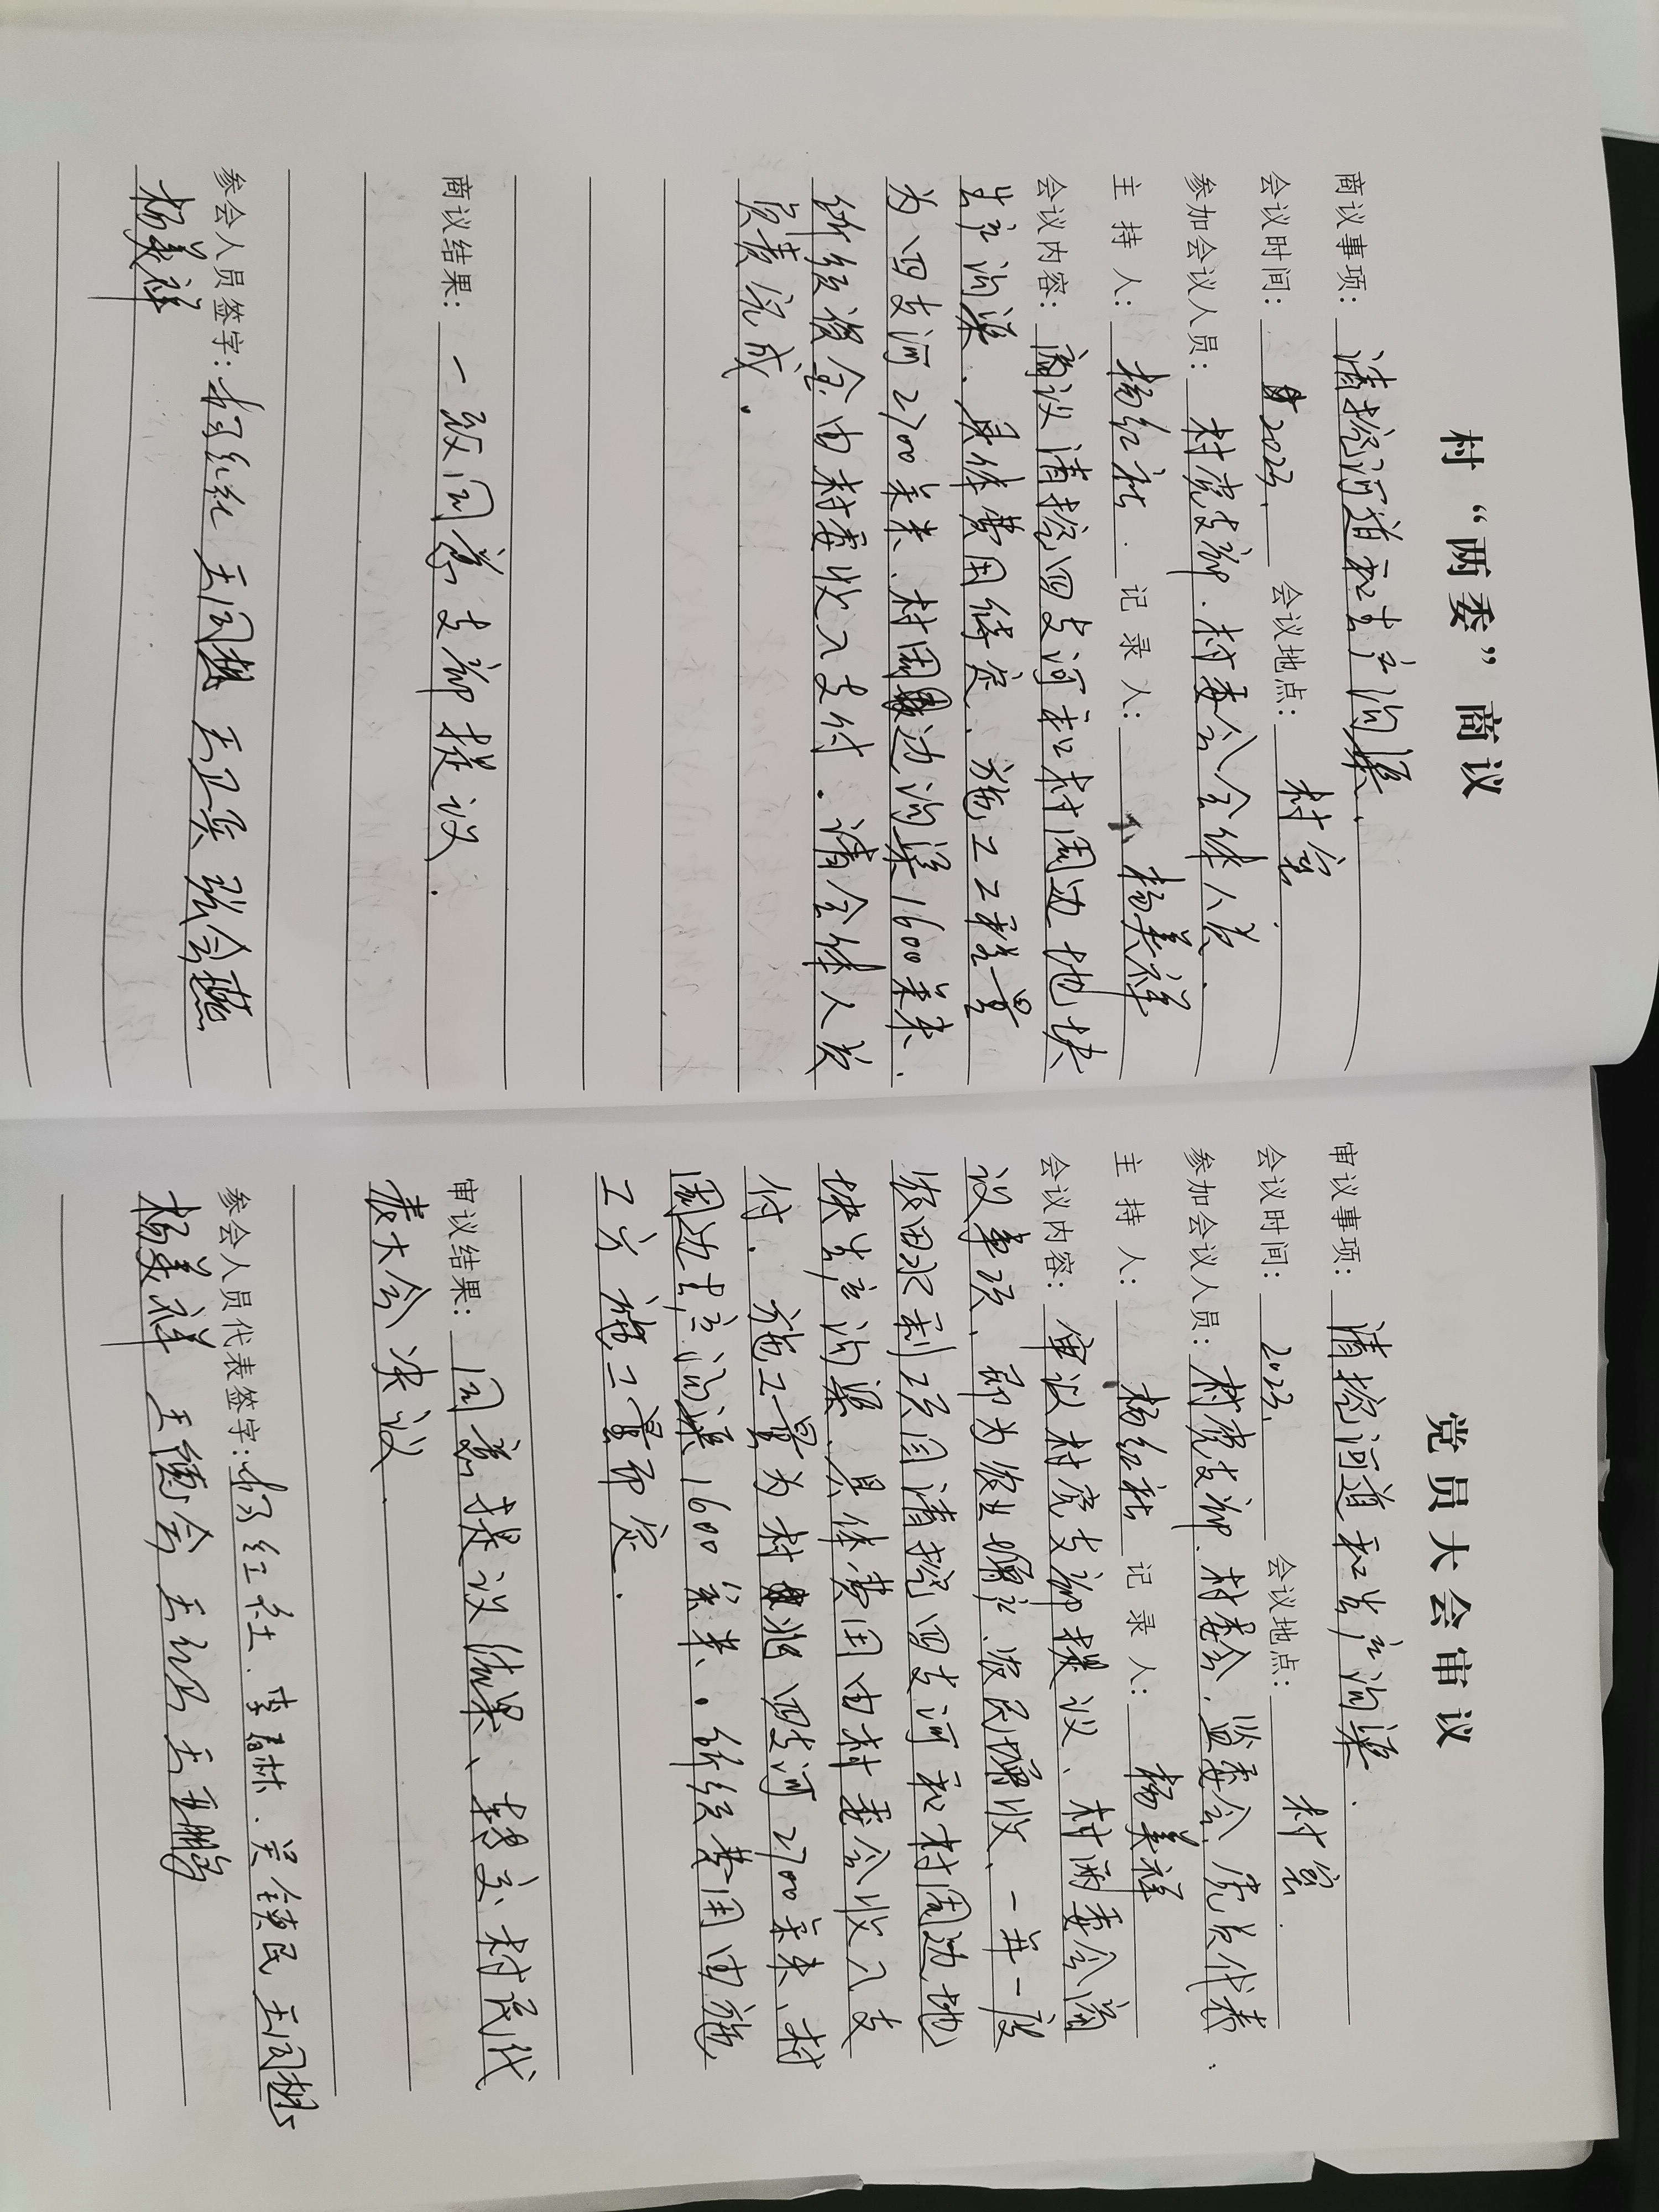 村“两委”商议
商议事项：清挖河道和生产沟渠.
会议时间：2023. 会议地点：村室.
参加会议人员：村党支部、村委会全体人员.
主持人：杨红社. 记录人：杨美祥
会议内容：商议清挖四支河和村周边地块
生产沟渠、具体费用待定、施工工程量
为四支河2700余米、村周边沟渠1600余米.
所须资金由村委收入支付。请全体人员
负责完成。
商议结果：一致同意支部提议.
参会人员签字：杨红社 王同想 王卫兵 张会燕
杨美祥
党员大会审议
审议事项：清挖河道和生产沟渠.
会议时间：2023. 会议地点：村室.
参加会议人员：村党支部、村委会、监委会、党员代表.
主持人：杨红社 记录人：杨美祥
会议内容：审议村党支部提议、村两委会商
议事项、即为农业增产、农民增收、一年一度
农田水利项目清挖四支河和村周边地
块生产沟渠、具体费用由村委会收入支
付. 施工量为村北四支河2700余米、村
周边生产沟渠1600余米。所须费用由施
工方施工量而定.
审议结果：同意提议结果、转交村民代
表大会决议.
参会人员代表签字：杨红社、李春林、吴镇民 王同想
杨美祥 王德会 王红卫 王亚鹏